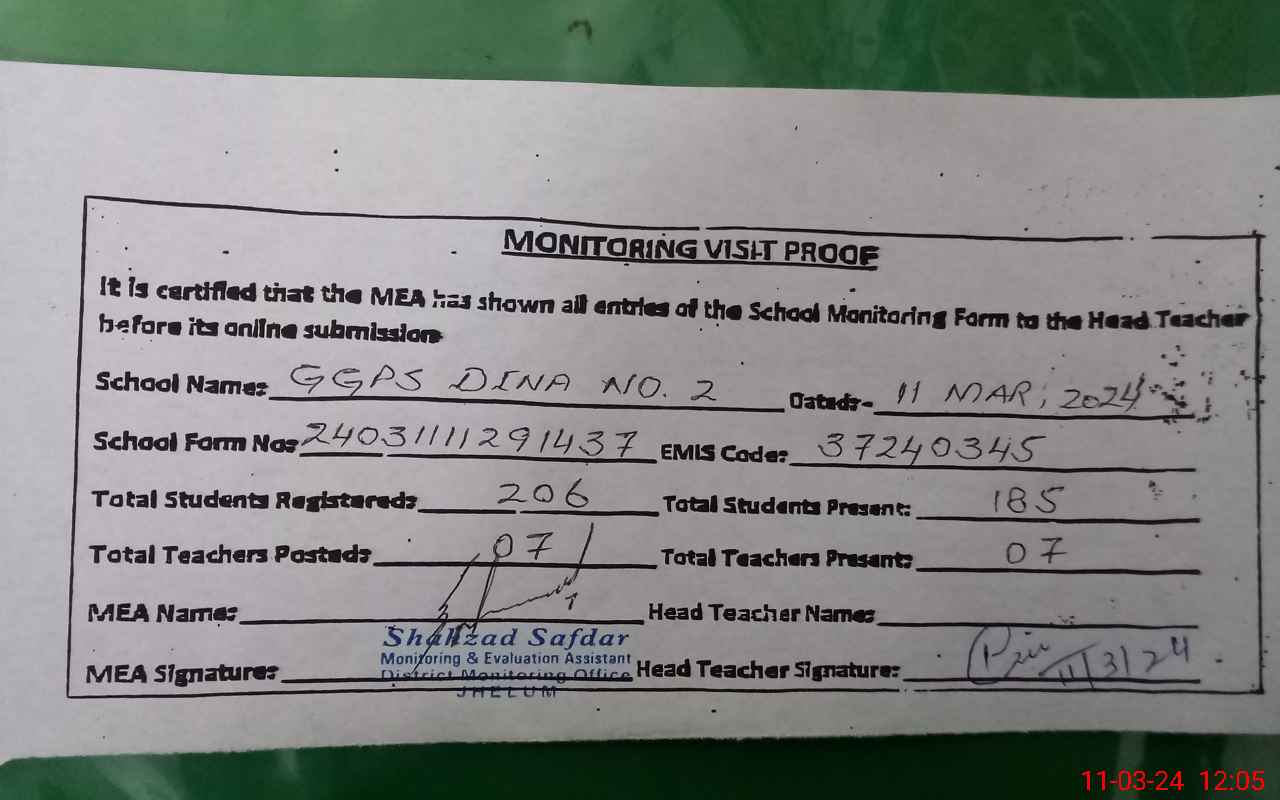 MONITORING VISIT PROOF
It is certified that the MEA has shown all entries of the School Monitoring Form to the Head Teacher
before its online submission
School Name: GGPS DINA NO. 2 Dated:- 11 MAR, 2024
School Form No: 24031111291437 EMIS Code: 37240345
Total Students Registered: 206 Total Students Present: 185
Total Teachers Posted: 07 Total Teachers Present: 07
MEA Name: Head Teacher Name:
Shahzad Safdar
Monitoring & Evaluation Assistant
District Monitoring Office
JHELUM
MEA Signature: Head Teacher Signature: 11/3/24
11-03-24 12:05